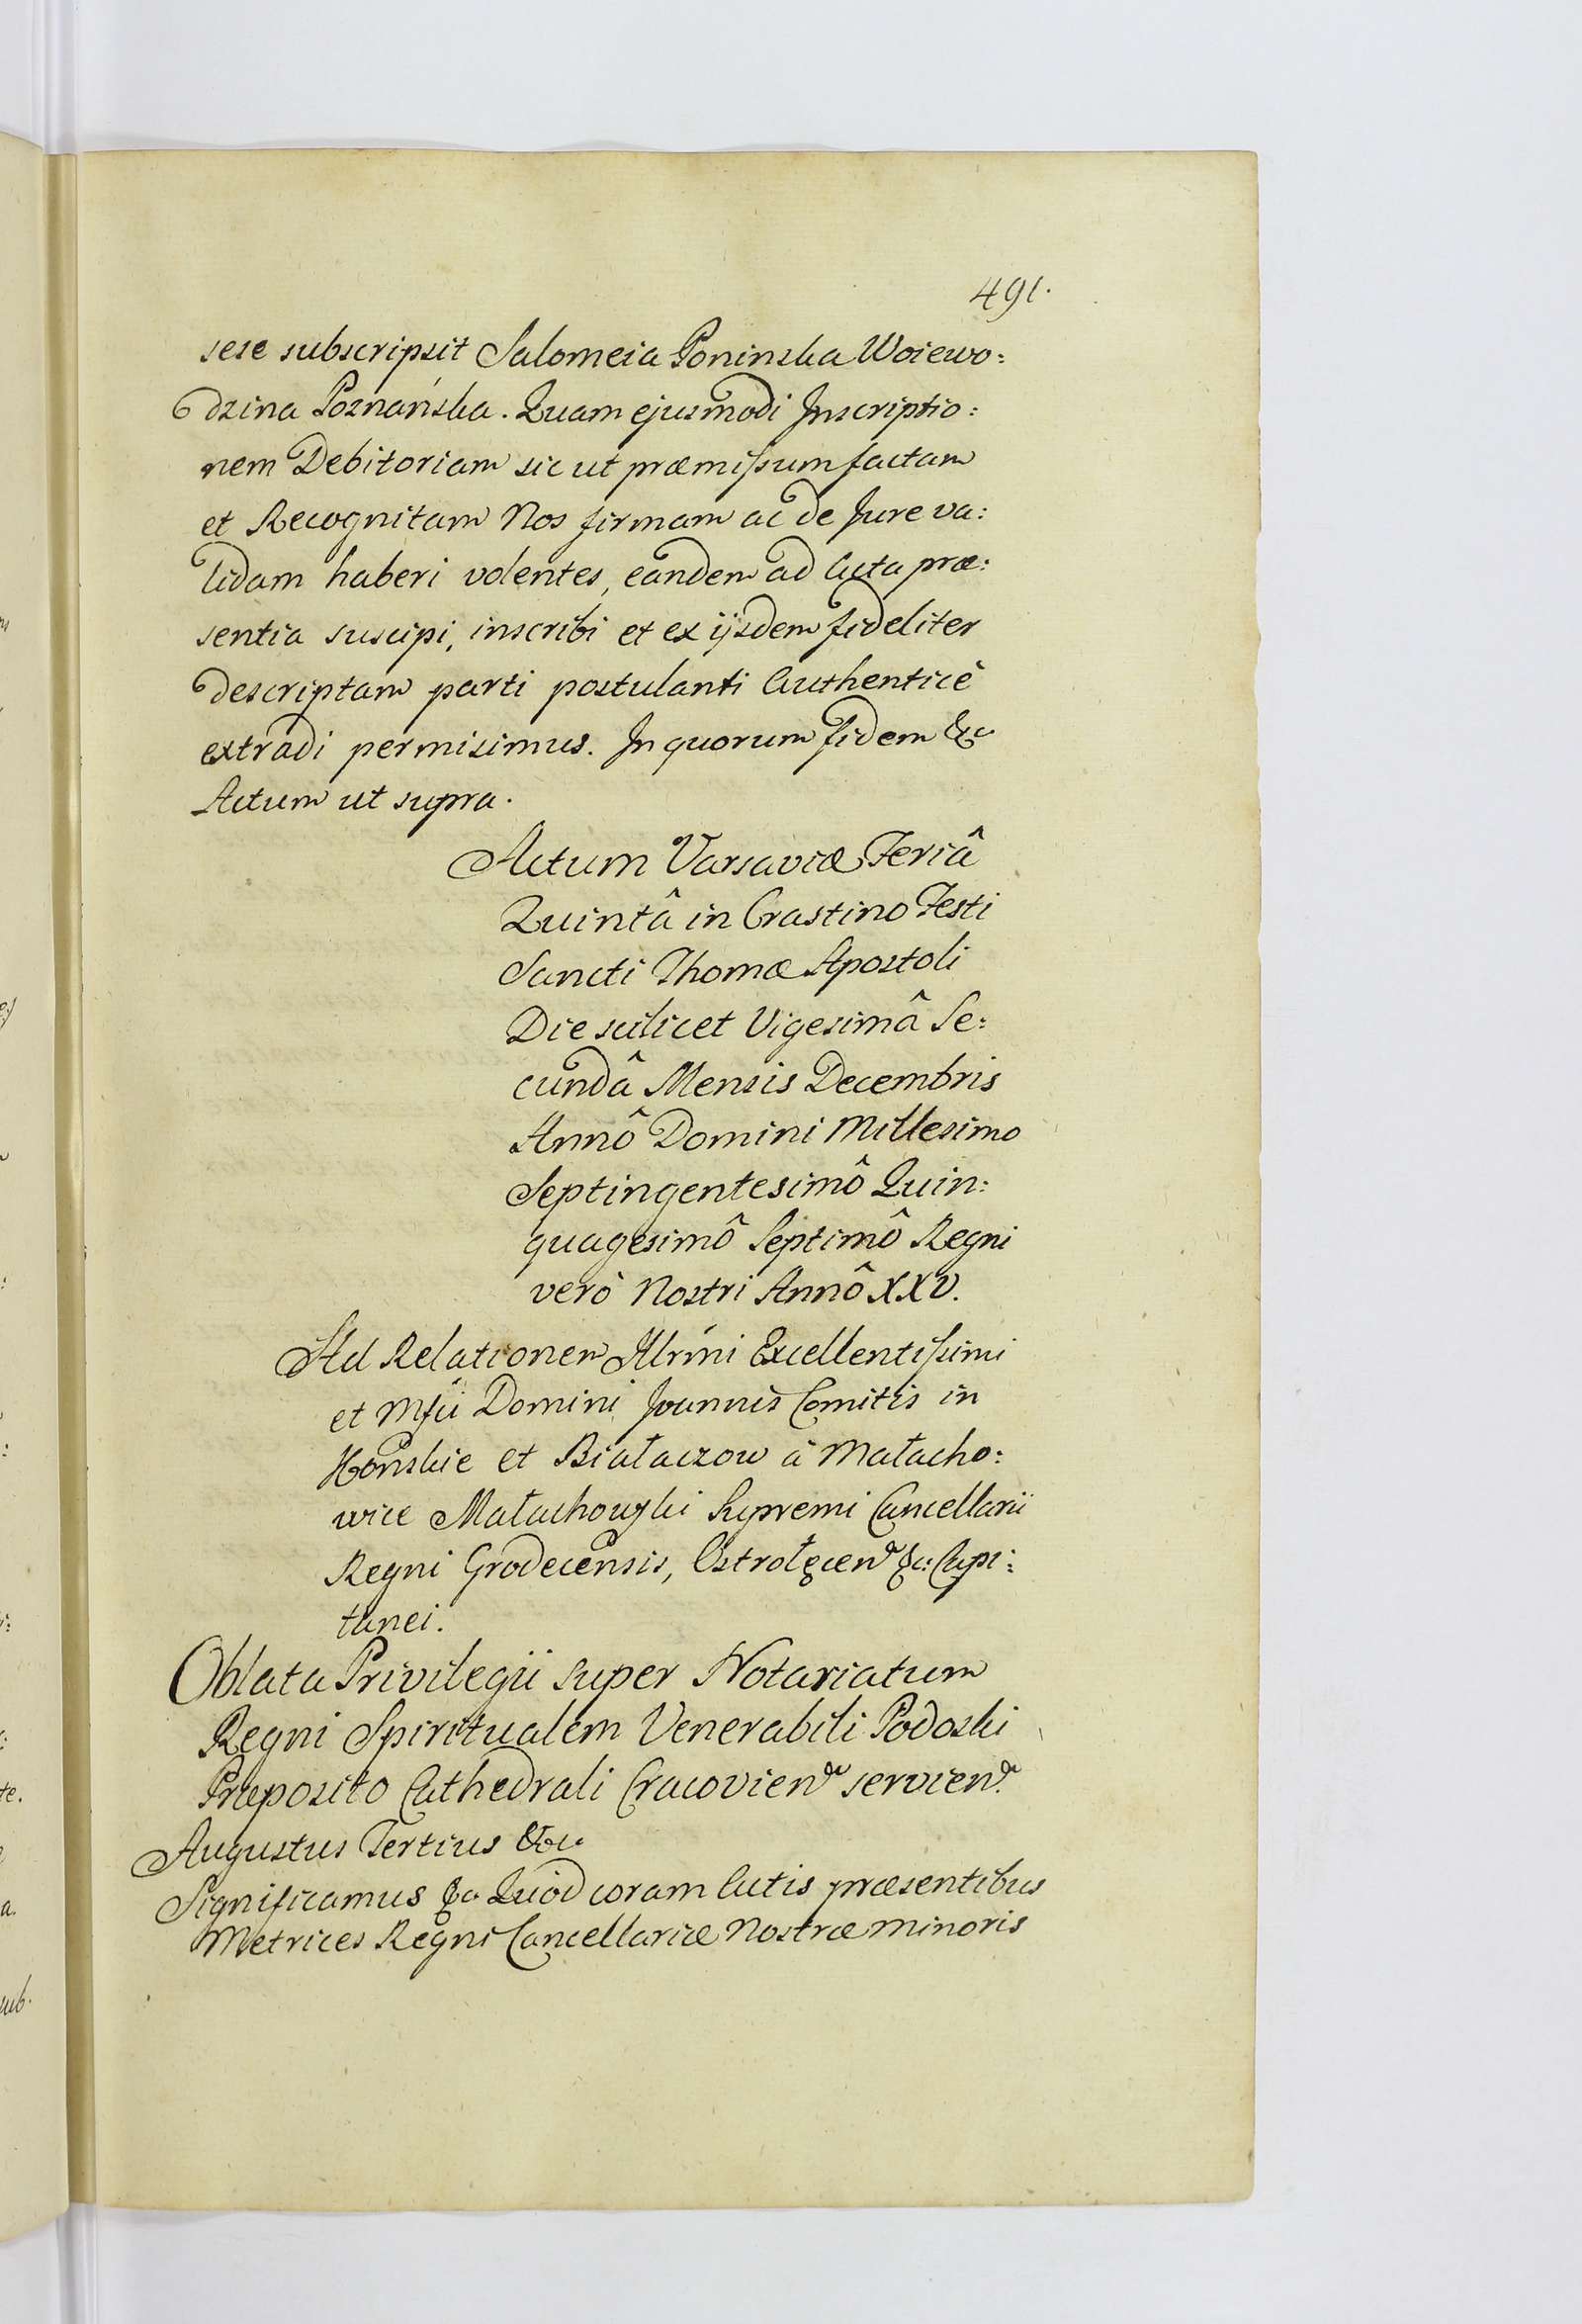 491.
sese subscripsit Salomeia Poninska Woiewo:
dzina Poznańska. Quam ejusmodi Inscriptio:
nem Debitoriam sic ut præmissum factam
et Recognitam Nos firmam ac de Jure va:
lidam haberi volentes, eandem ad Acta præ:
sentia suscipi, inscribi et ex iisdem fideliter
descriptam parti postulanti Authenticè
extradi permisimus. In quorum fidem &c
Actum ut supra.
Actum Varsaviæ Feriâ
Quintâ in Crastino Festi
Sancti Thomæ Apostoli
Die scilicet Vigesimâ Se:
cundâ Mensis Decembris
Annô Domini Millesimo
Septingentesimô Quin:
quagesimô Septimô Regni
verò Nostri Annô XXV.
Ad Relationem Illrmi Excellentissimi
et Mfci Domini Joannis Comitis in
Konskie et Białaczow à Małacho:
wice Małachowski Supremi Cancellarii
Regni Grodecensis, Ostrołęcen &c: Capi:
tanei.
Oblata Privilegii super Notariatum
Regni Spiritualem Venerabili Podoski
Præposito Cathedrali Cracovien servien.
Augustus Tertius &c
Significamus &c Quod coram Actis præsentibus
Metrices Regni Cancellariæ Nostræ Minoris